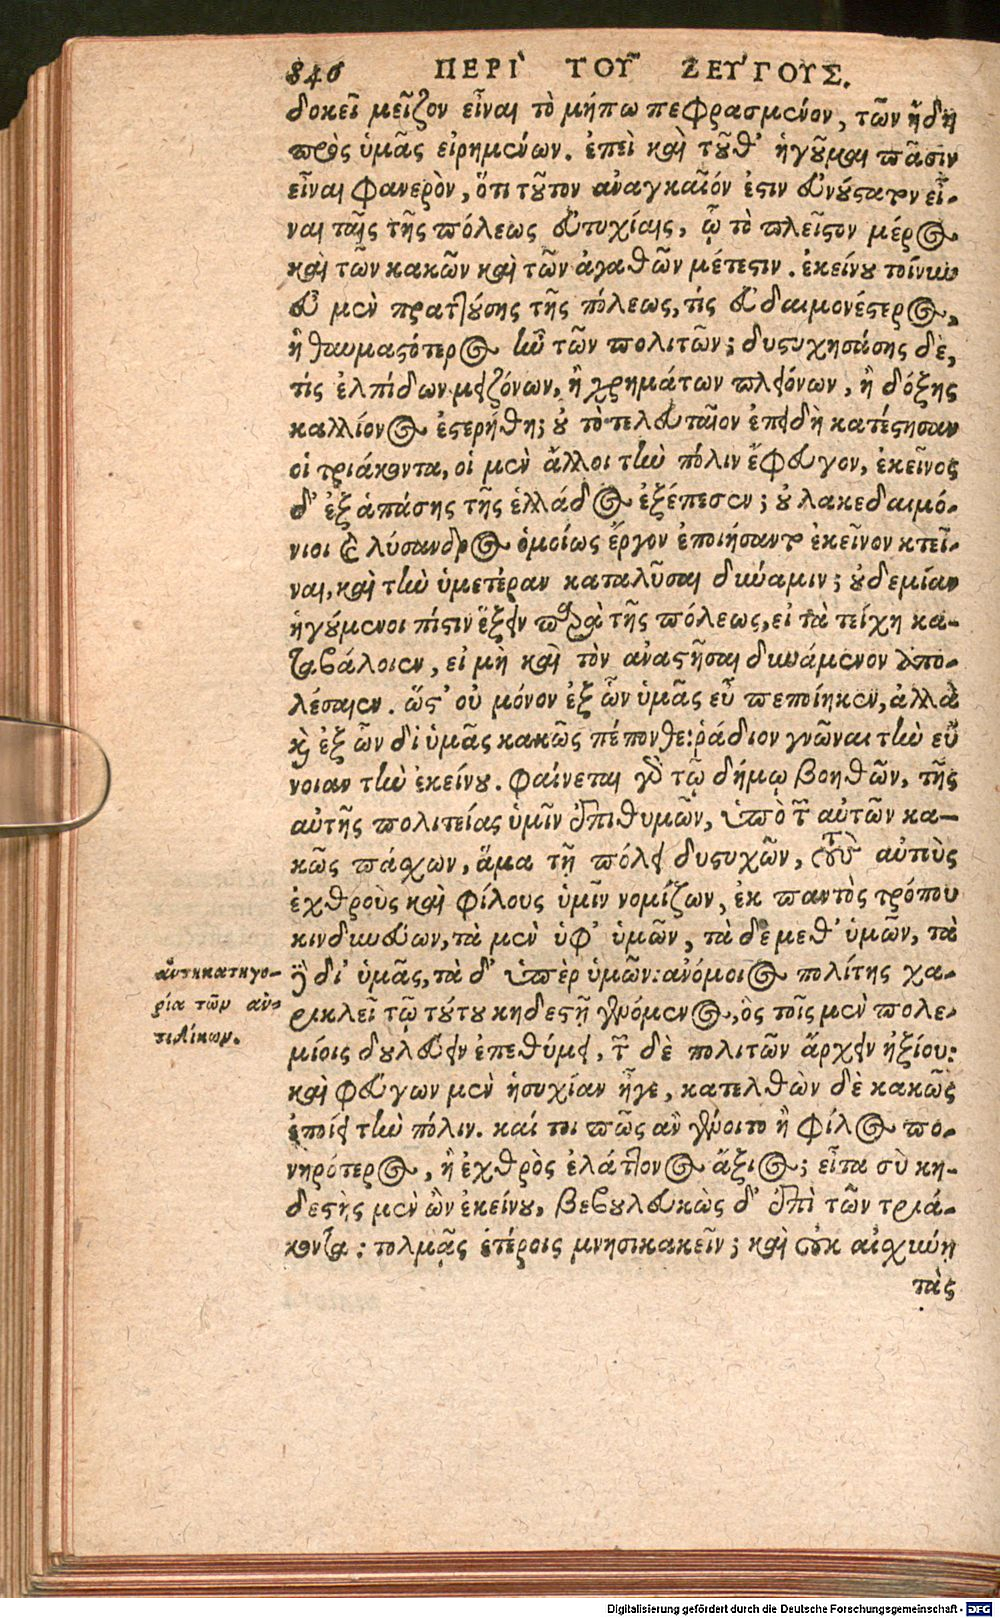 846 ΠΕΡῚ ΤΟΥ͂ ΖΕΎΓΟΥΣ.
δοκεῖ μεῖζον εἶναι τὸ μήπω πεφρασμένον, τῶν ἤδη
πρὸς ὑμᾶς εἰρημένων. ἐπεὶ καὶ τοῦθ' ἡγοῦμαι πᾶσιν
εἶναι φανερὸν, ὅτι τοῦτον ἀναγκαῖόν ἐστιν εὐνούστατον εἶ-
ναι ταῖς τῆς πόλεως εὐτυχίαις, ᾧ τὸ πλεῖστον μέρος
καὶ τῶν κακῶν καὶ τῶν ἀγαθῶν μέτεστιν. ἐκείνου τοίνυν
εὖ μὲν πραττούσης τῆς πόλεως, τίς εὐδαιμονέστερος,
ἢ θαυμαστότερος ἦν τῶν πολιτῶν; δυστυχησάσης δὲ,
τίς ἐλπίδων μειζόνων, ἢ χρημάτων πλειόνων, ἢ δόξης
καλλίονος ἐστερήθη; οὐ τὸ τελευταῖον ἐπειδὴ κατέστησαν
οἱ τριάκοντα, οἱ μὲν ἄλλοι τὴν πόλιν ἔφευγον, ἐκεῖνος
δ' ἐξ ἁπάσης τῆς ἑλλάδος ἐξέπεσεν; οὐ λακεδαιμό-
νιοι καὶ λύσανδρος ὁμοίως ἔργον ἐποιήσαντο ἐκεῖνον κτεῖ-
ναι, καὶ τὴν ὑμετέραν καταλῦσαι δύναμιν; οὐδεμίαν
ἡγούμενοι πίστιν ἕξειν παρὰ τῆς πόλεως, εἰ τὰ τείχη κα-
ταβάλοιεν, εἰ μὴ καὶ τὸν ἀναστῆσαι δυνάμενον ἀπο-
λέσαιεν. ὥστ' οὐ μόνον ἐξ ὧν ὑμᾶς εὖ πεποίηκεν, ἀλλὰ
καὶ ἐξ ὧν δι ὑμᾶς κακῶς πέπονθε: ῥάδιον γνῶναι τὴν εὔ
νοιαν τὴν ἐκείνου. φαίνεται γὰρ τῷ δήμῳ βοηθῶν, τῆς
αὐτῆς πολιτείας ὑμῖν ἐπιθυμῶν, ὑπὸ τῶν αὐτῶν κα-
κῶς πάσχων, ἅμα τῇ πόλει δυστυχῶν, τοὺς αὐτοὺς
ἐχθροὺς καὶ φίλους ὑμῖν νομίζων, ἐκ παντὸς τρόπου
κινδυνεύων, τὰ μὲν ὑφ' ὑμῶν, τὰ δε μεθ' ὑμῶν, τὰ
δὲ δι' ὑμᾶς, τὰ δ' ὑπὲρ ὑμῶν: ἀνόμοιος πολίτης χα-
ρικλεῖ τῷ τούτου κηδεστῇ γενόμενος, ὃς τοῖς μὲν πολε-
μίοις δουλεύειν ἐπεθύμει, τῶν δὲ πολιτῶν ἄρχειν ἠξίου:
καὶ φεύγων μὲν ἡσυχίαν ἦγε, κατελθὼν δὲ κακῶς
ἐποίει τὴν πόλιν. καί τοι πῶς ἂν γένοιτο ἢ φίλος πο-
νηρότερος, ἢ ἐχθρὸς ἐλάττονος ἄξιος; εἶτα σὺ κη-
δεστὴς μὲν ὢν ἐκείνου, βεβουλευκὼς δ' ἐπὶ τῶν τριά-
κοντα: τολμᾷς ἑτέροις μνησικακεῖν; καὶ οὐκ αἰσχύνῃ
τὰς
ἀντικατηγο-
ρία τῶν ἀν-
τιδίκων.
Digitalisierung gefördert durch die Deutsche Forschungsgemeinschaft - DFG